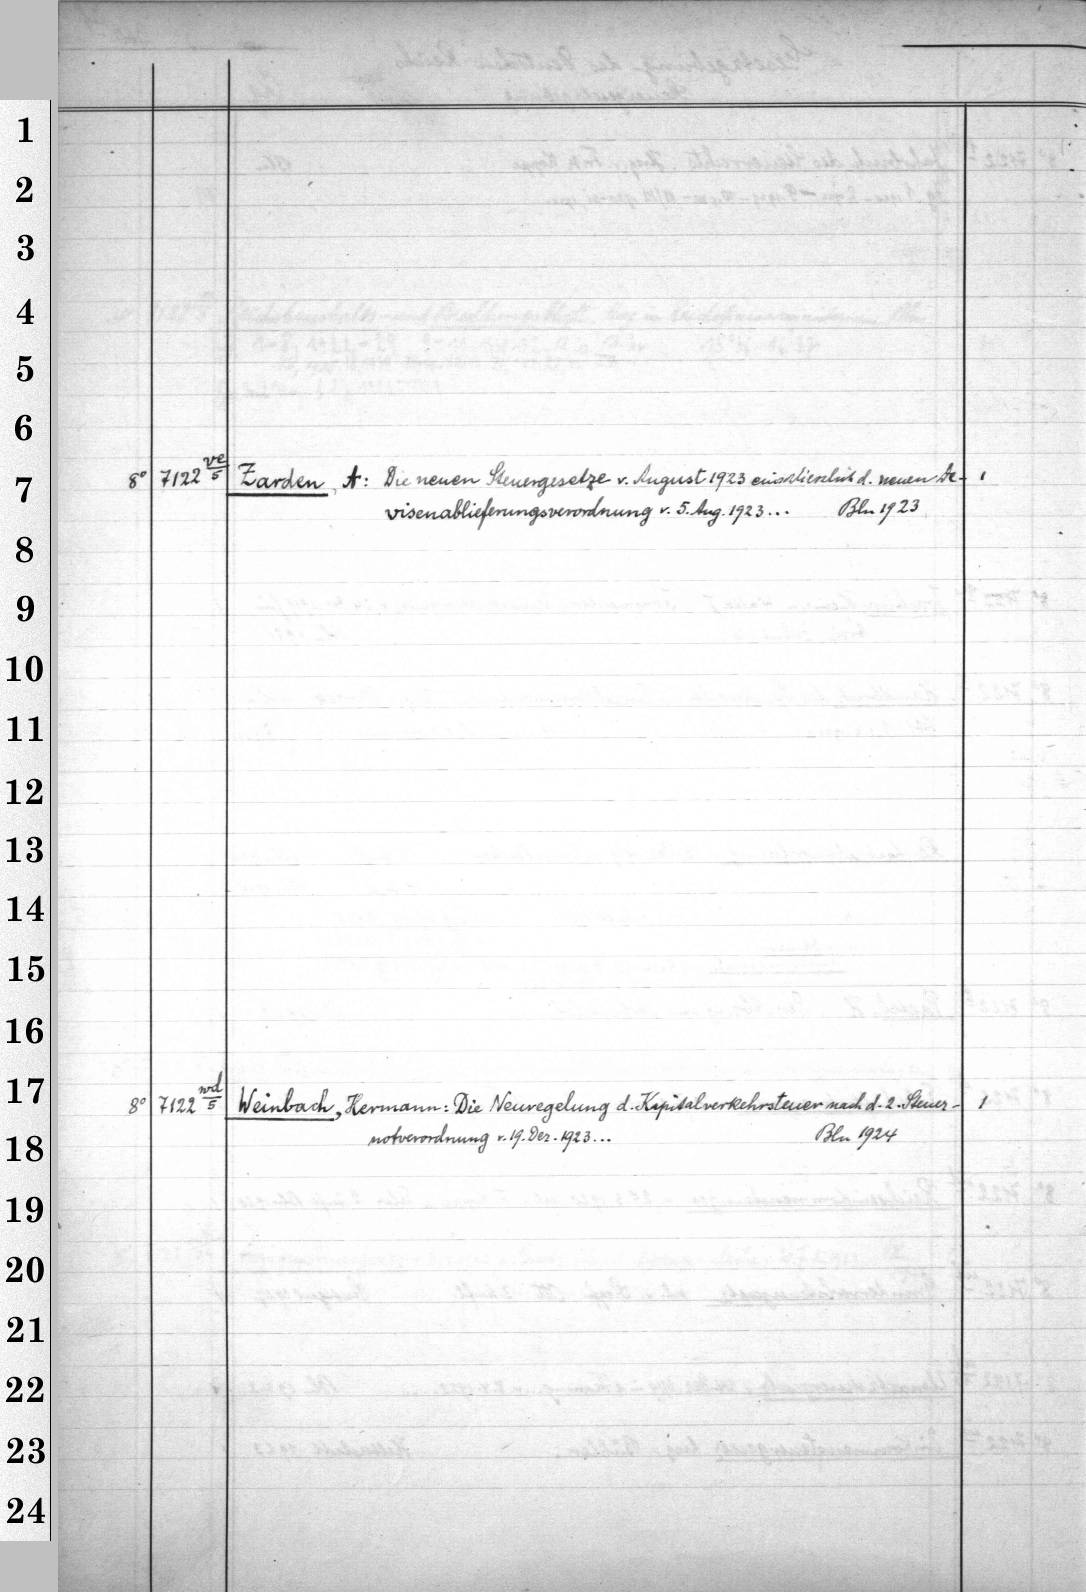 1
2
3
4
5
6
7
8° 7122 ve/5 Zarden, A: Die neuen Steuergesetze v. August 1923 einschliesslich d. neuen De- 1
visenablieferungsverordnung v. 5. Aug. 1923... Bln 1923
8
9
10
11
12
13
14
15
16
17
8° 7122 wd/5 Weinbach, Hermann: Die Neuregelung d. Kapitalverkehrsteuer nach d. 2. Steuer- 1
notverordnung v. 19. Dez. 1923... Bln 1924
18
19
20
21
22
23
24